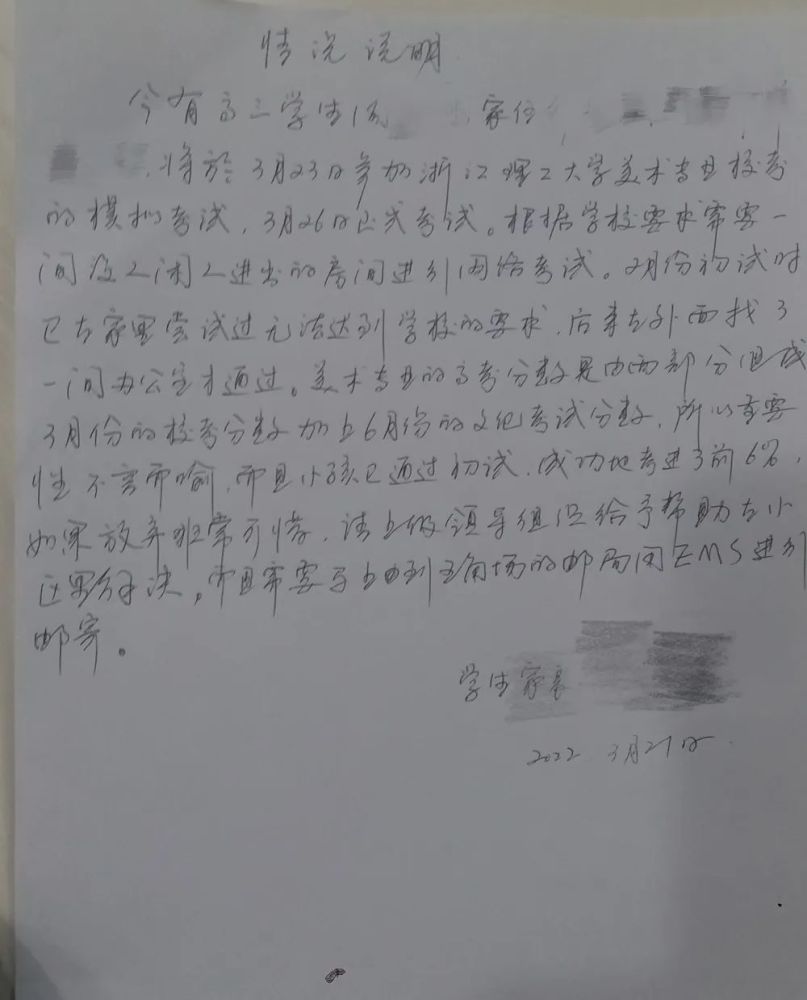 情况说明
今有高三学生 家住
将於3月23日参加浙江理工大学美术专业校考
的模拟考试，3月26日正式考试。根据学校要求需要一
间没人闲人进出的房间进行网络考试。2月份初试时
已在家里尝试过无法达到学校的要求，后来在外面找了
一间办公室才通过。美术专业的高考分数是由两部分组成
3月份的校考分数加上6月份的文化考试分数，所以重要
性不言而喻，而且小孩已通过初试，成功地考进了前6%，
如果放弃非常可惜，请上级领导组织给予帮助在小
区里解决，而且需要于 到五角场的邮局用EMS进行
邮寄。
学生家长
2022 3月21日